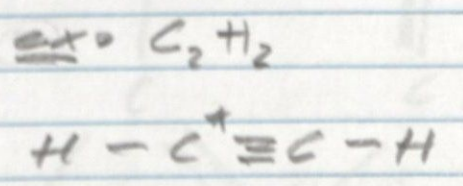 ex. C₂H₂
H - C* ≡ C - H